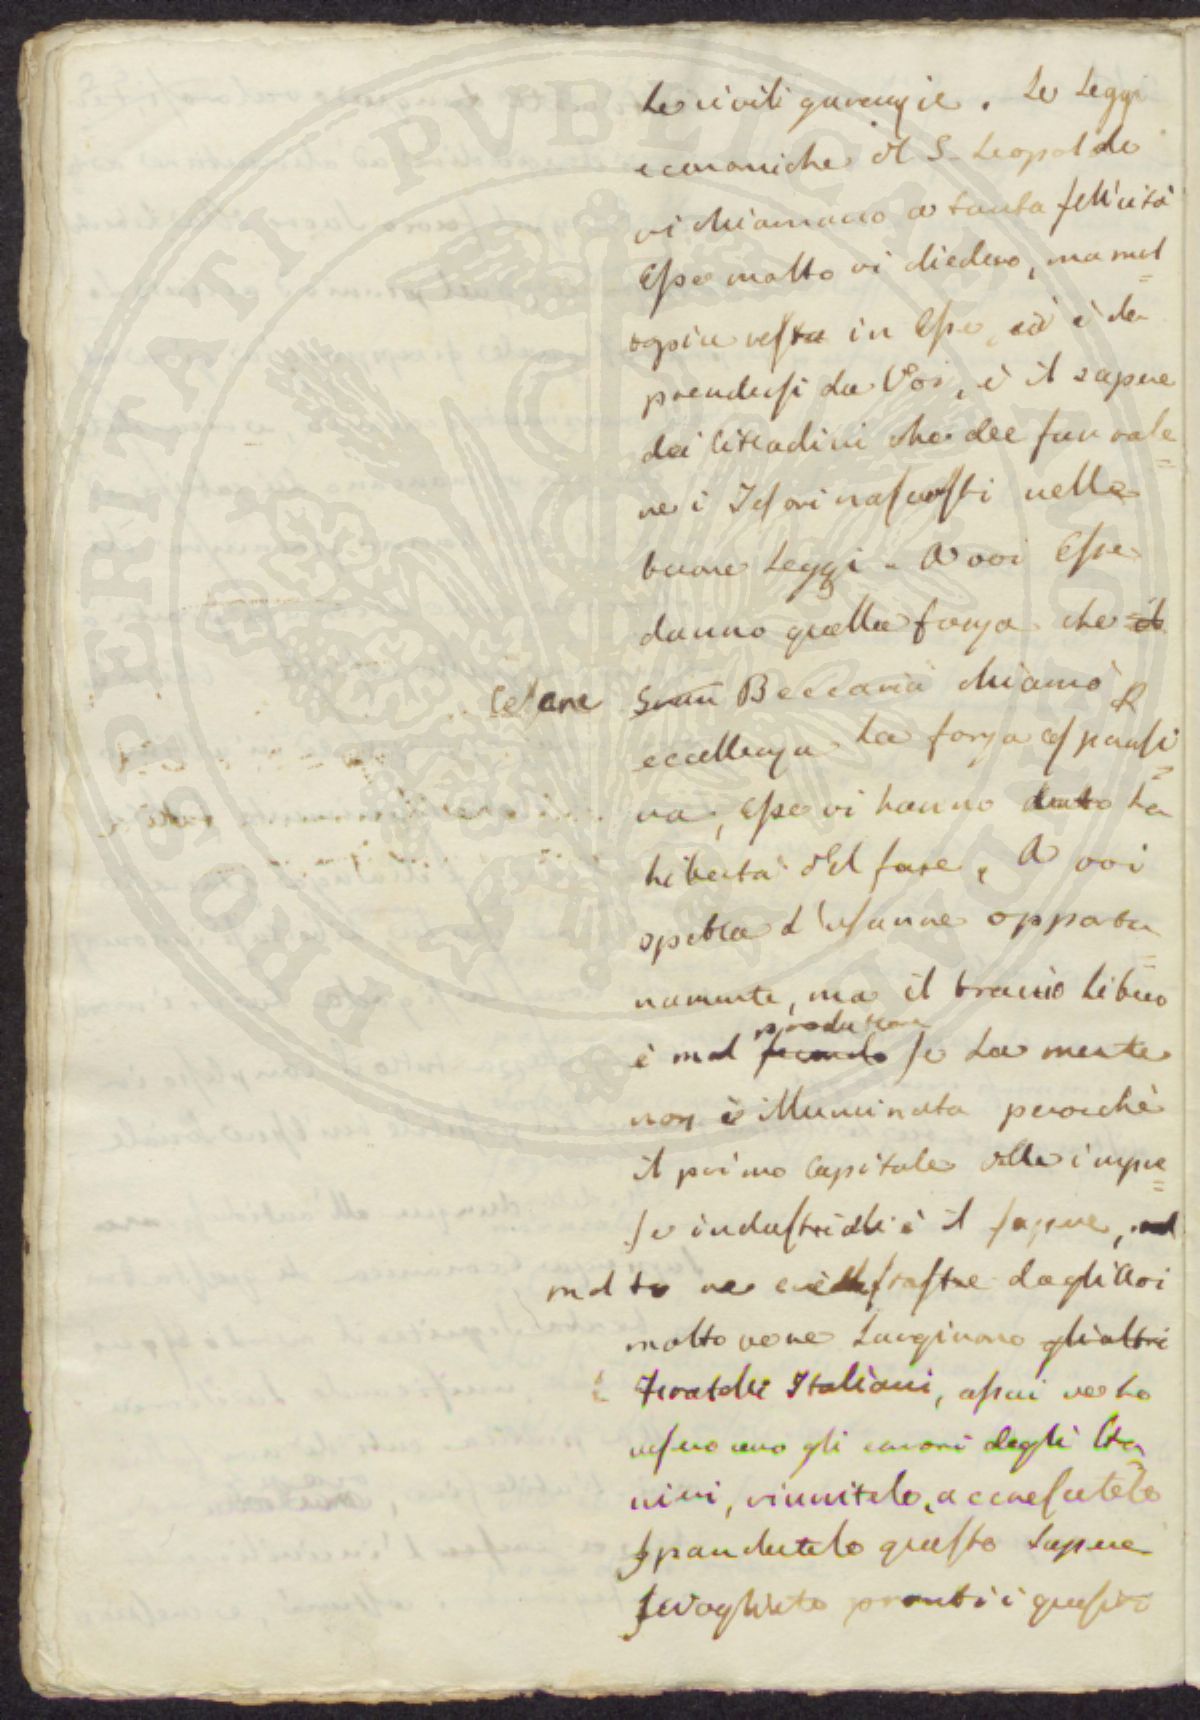 le civili garenzie. Le Leggi
economiche di S. Leopoldo
vi chiamano a tanta felicità
Esse molto vi diedero, ma mol=
to più resta in Esse, ed è da
prendersi da Voi, è il sapere
dei Cittadini che dee far vale=
re i Tesori nascosti nelle
buone Leggi. A voi Esse
danno quella forza che il
celebre Gran Beccaria chiamò P.
eccellenza la forza espansi=
va, Esse vi hanno dato la
libertà del fare, A voi
spetta l'usarne opportu=
namente, ma il braccio libero
è mal produttore
fecondo se la mente
non è illuminata perocchè
il primo Capitale delle impre=
se industriali è il sapere,
molto ne dagli Avi
molto ve ne largirono gli altri
Fratelli Italiani, assai ve lo
gli errori degli
riunitelo, accrescetelo
Spandetelo questo sapere
Se vogliate pronti i quesiti
PROSPERITATI PVBLICAE AVGENDAE